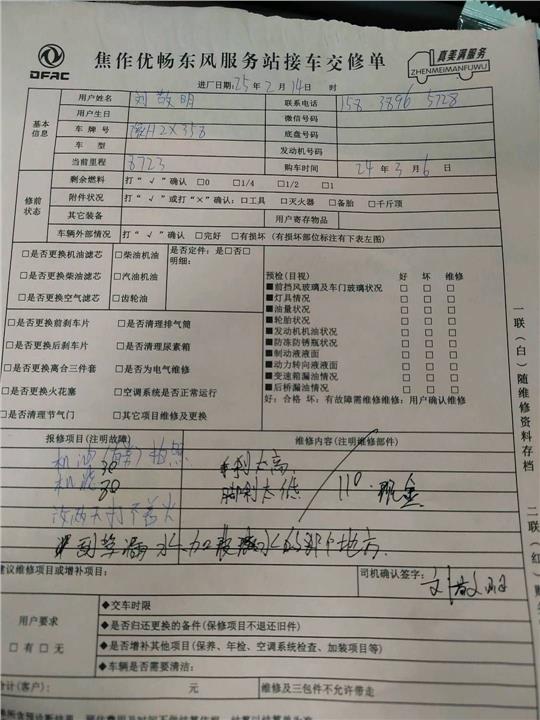 DFAC
焦作优畅东风服务站接车交修单
真美满服务
ZHENMEIMANFUWU
进厂日期:25年2月14日 时
基本信息
用户姓名 刘敬明 联系电话 158 3896 5728
用户生日 微信号码
车牌号 豫H2X358 底盘号码
车型 发动机号码
当前里程 8723 购车时间 24年3月6日
修前状态
剩余燃料 打“√”确认 □0 □1/4 □1/2 □1
附件状况 打“√”或打“×”确认:□工具 □灭火器 □备胎 □千斤顶
其它装备 用户寄存物品
车辆外部情况 打“√”确认 □完好 □有损坏(有损坏部位标注有下表左图)
□是否更换机油滤芯 □柴油机油 是否定件:是□否□
明细:
□是否更换柴油滤芯 □汽油机油
□是否更换空气滤芯 □齿轮油
预检(目视) 好 坏 维修
■前挡风玻璃及车门玻璃状况 □ □ □
■灯具情况 □ □ □
■油量状况 □ □ □
■轮胎状况 □ □ □
■发动机机油状况 □ □ □
■防冻防锈瓶状况 □ □ □
■制动液液面 □ □ □
■动力转向液液面 □ □ □
■变速箱漏油情况 □ □ □
■后桥漏油情况 □ □ □
好:合格 坏:有故障需维修维修:用户确认维修
□是否更换前刹车片 □是否清理排气筒
□是否更换后刹车片 □是否清理尿素箱
□是否更换离合三件套 □是否为电气维修
□是否更换火花塞 □空调系统是否正常运行
□是否清理节气门 □其它项目维修及更换
报修项目(注明故障) 维修内容(注明维修部件)
机油(自带)拍照 30 手刹太高
机滤 30 脚刹太低 110 现金
打不着火
漏水 加 水的那个地方
建议维修项目或增补项目: 司机确认签字: 刘敬明
用户要求
□有 □无
◆交车时限
◆是否归还更换的备件(保修项目不退还旧件)
◆是否增补其他项目(保养、年检、空调系统检查、加装项目等)
◆车辆是否需要清洁:
合计(客户): 元 维修及三包件不允许带走
一联(白)随维修资料存档
二联(红)